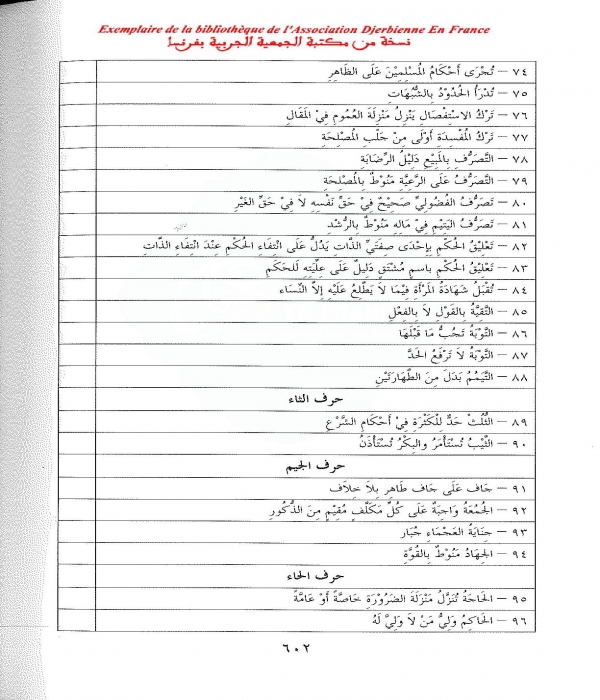 Exemplaire de la bibliothèque de l'Association Djerbienne En France
نسخة من مكتبة الجمعية الجربية بفرنسا
٧٤ – تُجْرَى أَحْكَامُ الْمُسْلِمِيْنَ عَلَى الظَّاهِرِ
٧٥ – تُدْرَأُ الْحُدُوْدُ بِالشُّبُهَاتِ
٧٦ – تَرْكُ الاسْتِفْصَالِ يَنْزِلُ مَنْزِلَةَ الْعُمُومِ فِيْ الْمَقَالِ
٧٧ – تَرْكُ الْمَفْسَدَةِ أَوْلَى مِنْ جَلْبِ الْمَصْلَحَةِ
٧٨ – التَّصَرُّفُ بِالْمَبِيْعِ دَلِيْلُ الرِّضَايَةِ
٧٩ – التَّصَرُّفُ عَلَى الرَّعِيَّةِ مَنُوْطٌ بِالْمَصْلَحَةِ
٨٠ – تَصَرُّفُ الْفُضُوْلِيِّ صَحِيْحٌ فِيْ حَقِّ نَفْسِهِ لاَ فِيْ حَقِّ الْغَيْرِ
٨١ – تَصَرُّفُ الْيَتِيْمِ فِيْ مَالِهِ مَنُوْطٌ بِالرُّشْدِ
٨٢ – تَعْلِيْقُ الْحُكْمِ بِإِحْدَى صِفَتَيْ الذَّاتِ يَدُلُّ عَلَى انْتِفَاءِ الْحُكْمِ عِنْدَ انْتِفَاءِ الذَّاتِ
٨٣ – تَعْلِيْقُ الْحُكْمِ بِاسْمٍ مُشْتَقٍّ دَلِيْلٌ عَلَى عِلِّيَّتِهِ لِلحَكَمِ
٨٤ – تُقْبَلُ شَهَادَةُ الْمَرْأَةِ فِيْمَا لاَ يَطَّلِعُ عَلَيْهِ إِلاَّ النِّسَاء
٨٥ – التَّقِيَّةُ بِالْقَوْلِ لاَ بِالْفِعْلِ
٨٦ – التَّوْبَةُ تَجُبُّ مَا قَبْلَهَا
٨٧ – التَّوْبَةُ لاَ تَرْفَعُ الْحَدَّ
٨٨ – التَّيَمُّمُ بَدَلٌ مِنَ الطَّهَارَتَيْنِ
حرف الثاء
٨٩ – الثُّلُثُ حَدٌّ لِلْكَثْرَةِ فِيْ أَحْكَامِ الشَّرْعِ
٩٠ – الثَّيِّبُ تُسْتَأْمَرُ والْبِكْرُ تُسْتَأْذَنُ
حرف الجيم
٩١ – جَاف عَلَى جَاف طَاهِر بِلاَ خِلاَف
٩٢ – الْجُمُعَةُ وَاجِبَةٌ عَلَى كُلِّ مُكَلَّفٍ مُقِيْمٍ مِنَ الذُّكُورِ
٩٣ – جِنَايَةُ الْعَجْمَاءِ جُبَار
٩٤ – الْجِهَادُ مَنُوْطٌ بِالقُوَّةِ
حرف الحاء
٩٥ – الْحَاجَةُ تُنَزَّلُ مَنْزِلَةَ الضَّرُوْرَةِ خَاصَّةً أَوْ عَامَّةً
٩٦ – الْحَاكِمُ وَلِيُّ مَنْ لاَ وَلِيَّ لَهُ
٦٠٢